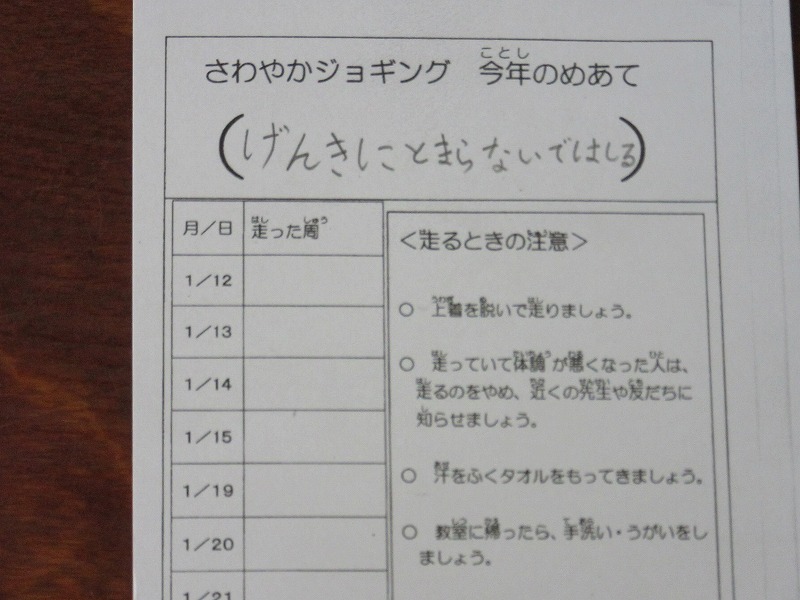 さわやかジョギング　今年のめあて
(げんきにとまらないではしる)
月／日　走った周
1／12
1／13
1／14
1／15
1／19
1／20
1／21
＜走るときの注意＞
○　上着を脱いで走りましょう。
○　走っていて体調が悪くなった人は、
走るのをやめ、近くの先生や友だちに
知らせましょう。
○　汗をふくタオルをもってきましょう。
○　教室に帰ったら、手洗い・うがいをし
ましょう。